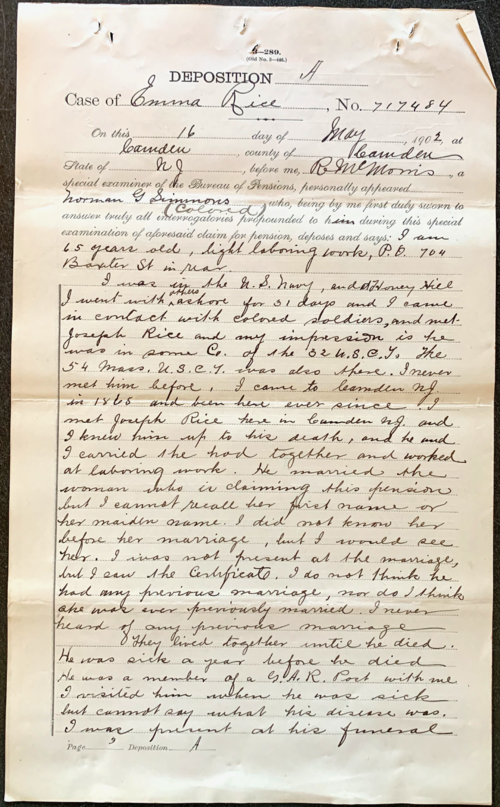 5—289.
(Old No. 3—446.)
DEPOSITION A
Case of Emma Rice, No. 717484
On this 16 day of May, 1902, at
Camden, county of Camden,
State of NJ, before me, R McMorris, a
special examiner of the Bureau of Pensions, personally appeared
Norman G Simmons who, being by me first duly sworn to
(Colored)
answer truly all interrogatories propounded to him during this special
examination of aforesaid claim for pension, deposes and says: I am
65 years old, light laboring work, P.O. 704
Baxter St in rear.
I was in the U.S. Navy, and at Honey Hill
I went with others ashore for 31 days and I came
in contact with colored soldiers, and met
Joseph Rice and my impression is he
was in some Co. of the 32 U.S.C.T. The
54 Mass. U.S.C.T. was also there. I never
met him before. I came to Camden NJ
in 1865 and been here ever since. I
met Joseph Rice here in Camden NJ. and
I knew him up to his death, and he and
I carried the hod together and worked
at laboring work. He married the
woman who is claiming this pension
but I cannot recall her first name or
her maiden name. I did not know her
before her marriage, but I would see
her. I was not present at the marriage,
but I saw the Certificate. I do not think he
had any previous marriage, nor do I think
she was ever previously married. I never
heard of any previous marriage
They lived together until he died.
He was sick a year before he died
He was a member of a G.A.R. Post with me
I visited him when he was sick
but cannot say what his disease was.
I was present at his funeral
Page 3 Deposition A